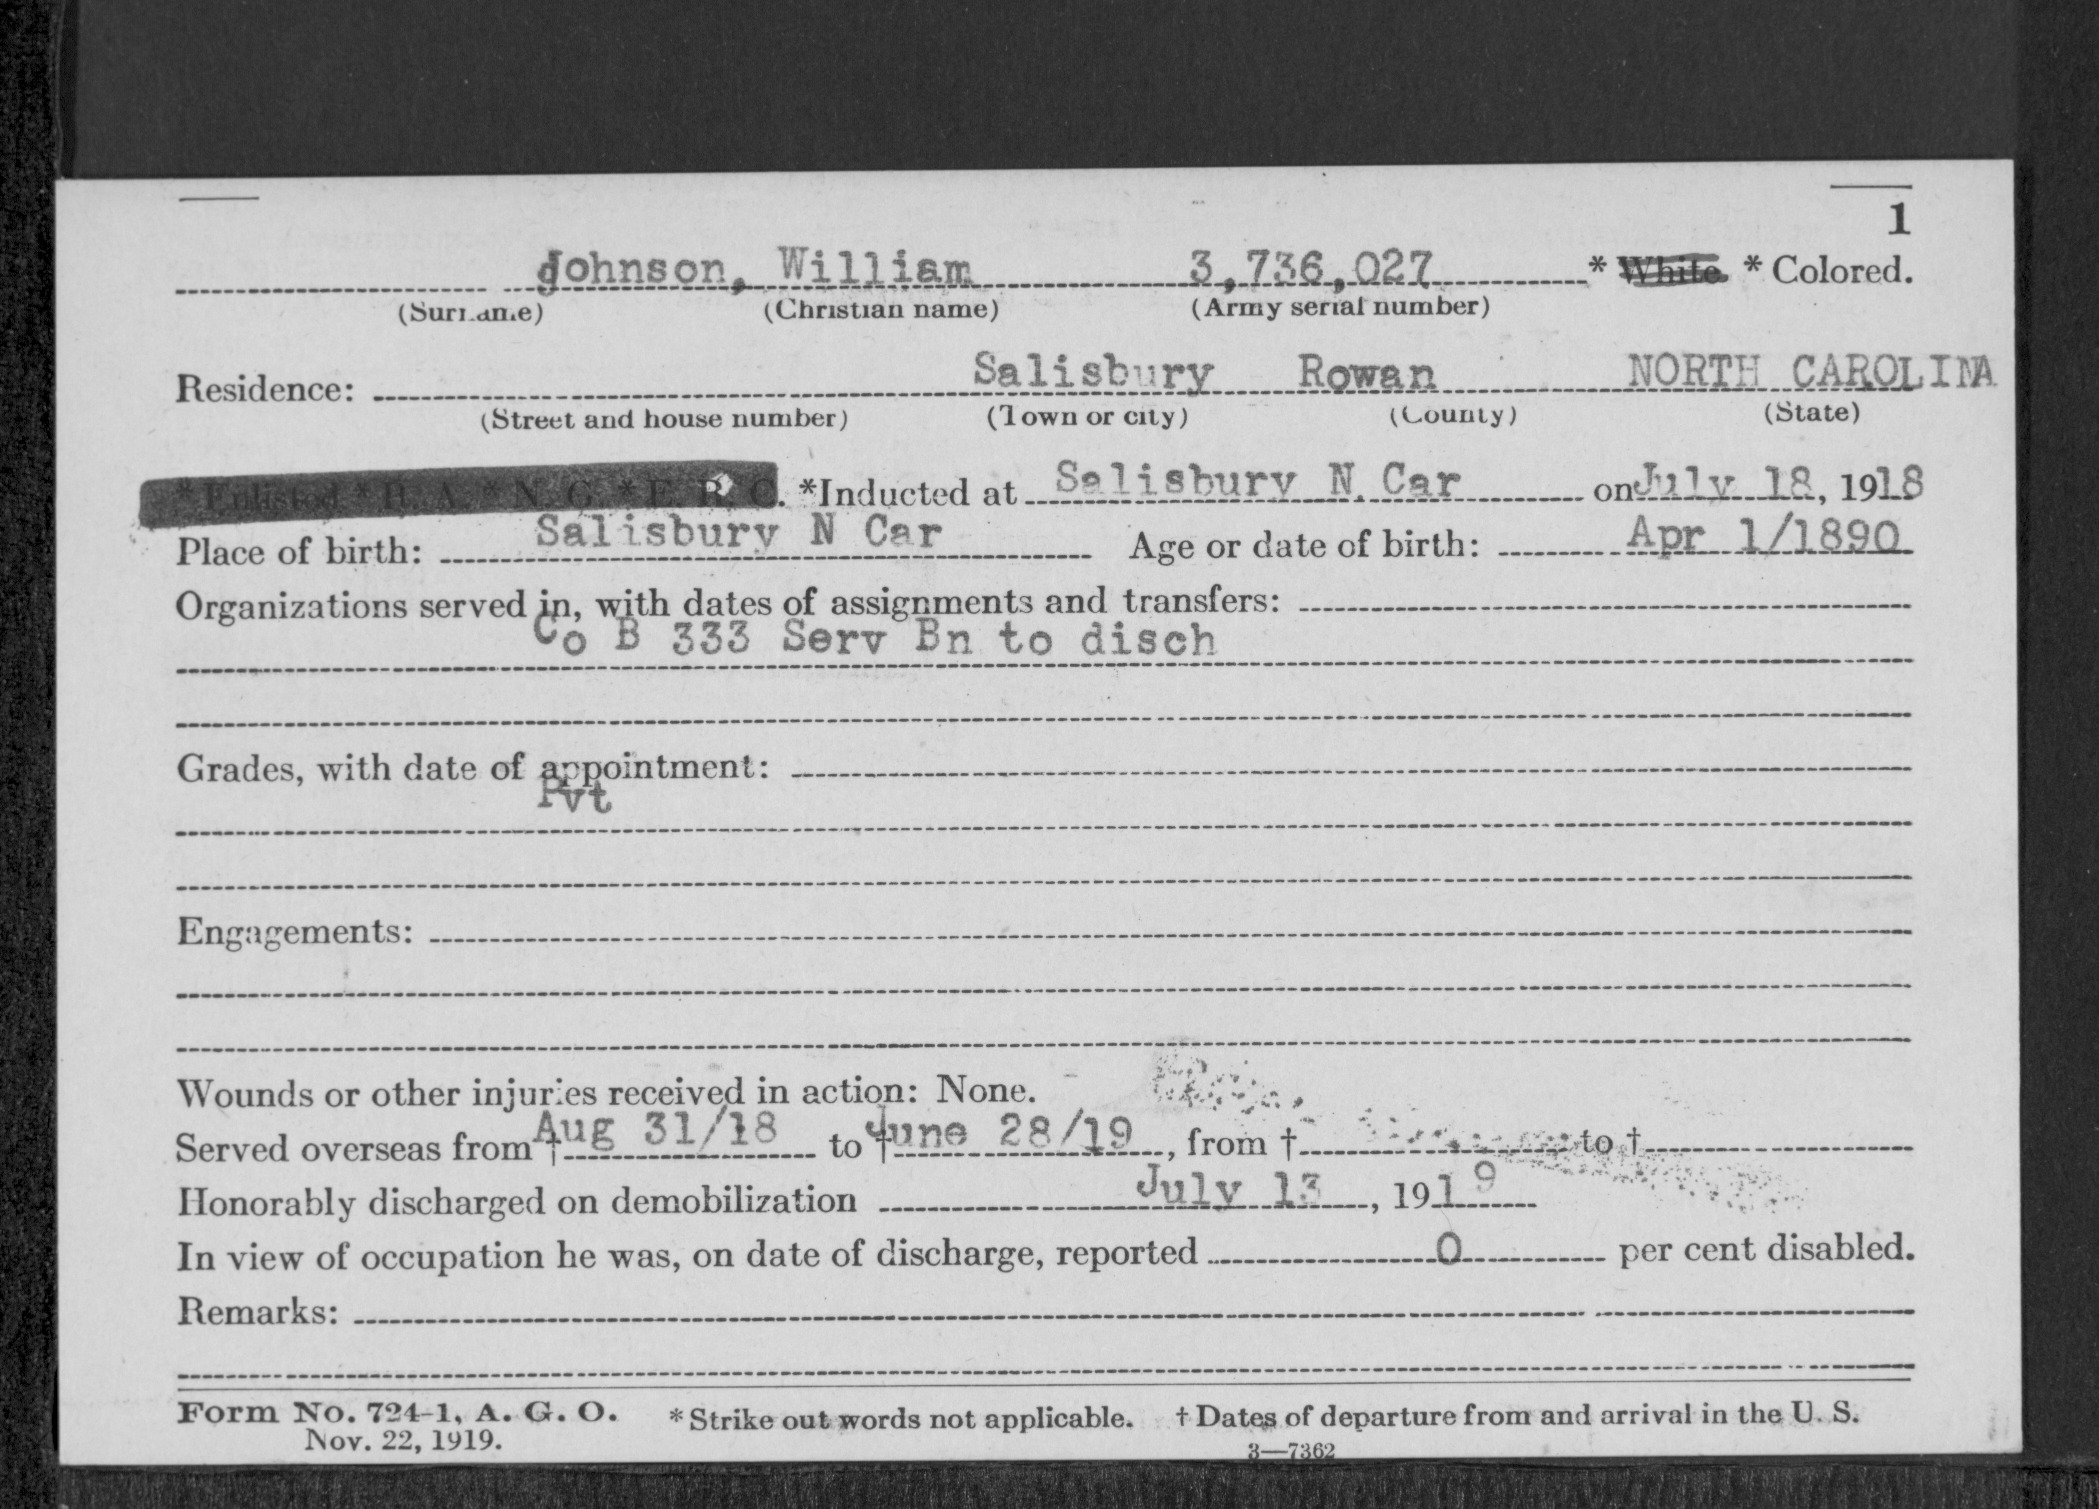 1
Johnson, William 3,736,027 * White * Colored.
(Surname) (Christian name) (Army serial number)
Salisbury Rowan NORTH CAROLINA
Residence:
(Street and house number) (Town or city) (County) (State)
* Enlisted * R. A. * N. G. * E. R. C. *Inducted at Salisbury N. Car on July 18, 1918
Place of birth: Salisbury N Car Age or date of birth: Apr 1/1890
Organizations served in, with dates of assignments and transfers:
Co B 333 Serv Bn to disch
Grades, with date of appointment:
Pvt
Engagements:
Wounds or other injuries received in action: None.
Served overseas from † Aug 31/18 to † June 28/19, from † to †
Honorably discharged on demobilization July 13, 1919
In view of occupation he was, on date of discharge, reported 0 per cent disabled.
Remarks:
Form No. 724-1, A. G. O. * Strike out words not applicable. † Dates of departure from and arrival in the U. S.
Nov. 22, 1919.
3—7362